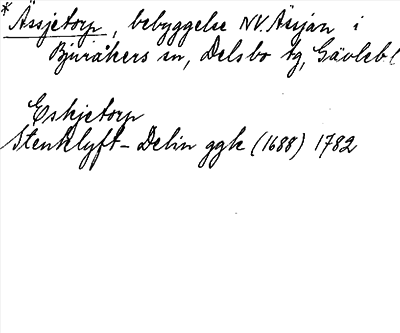 * Ässjetorp, bebyggelse NV. Ässjan i
Bjuråkers sn, Delsbo tg, Gävleb l
Eskjetorp
Stenklyft - Delin ggk (1688) 1782